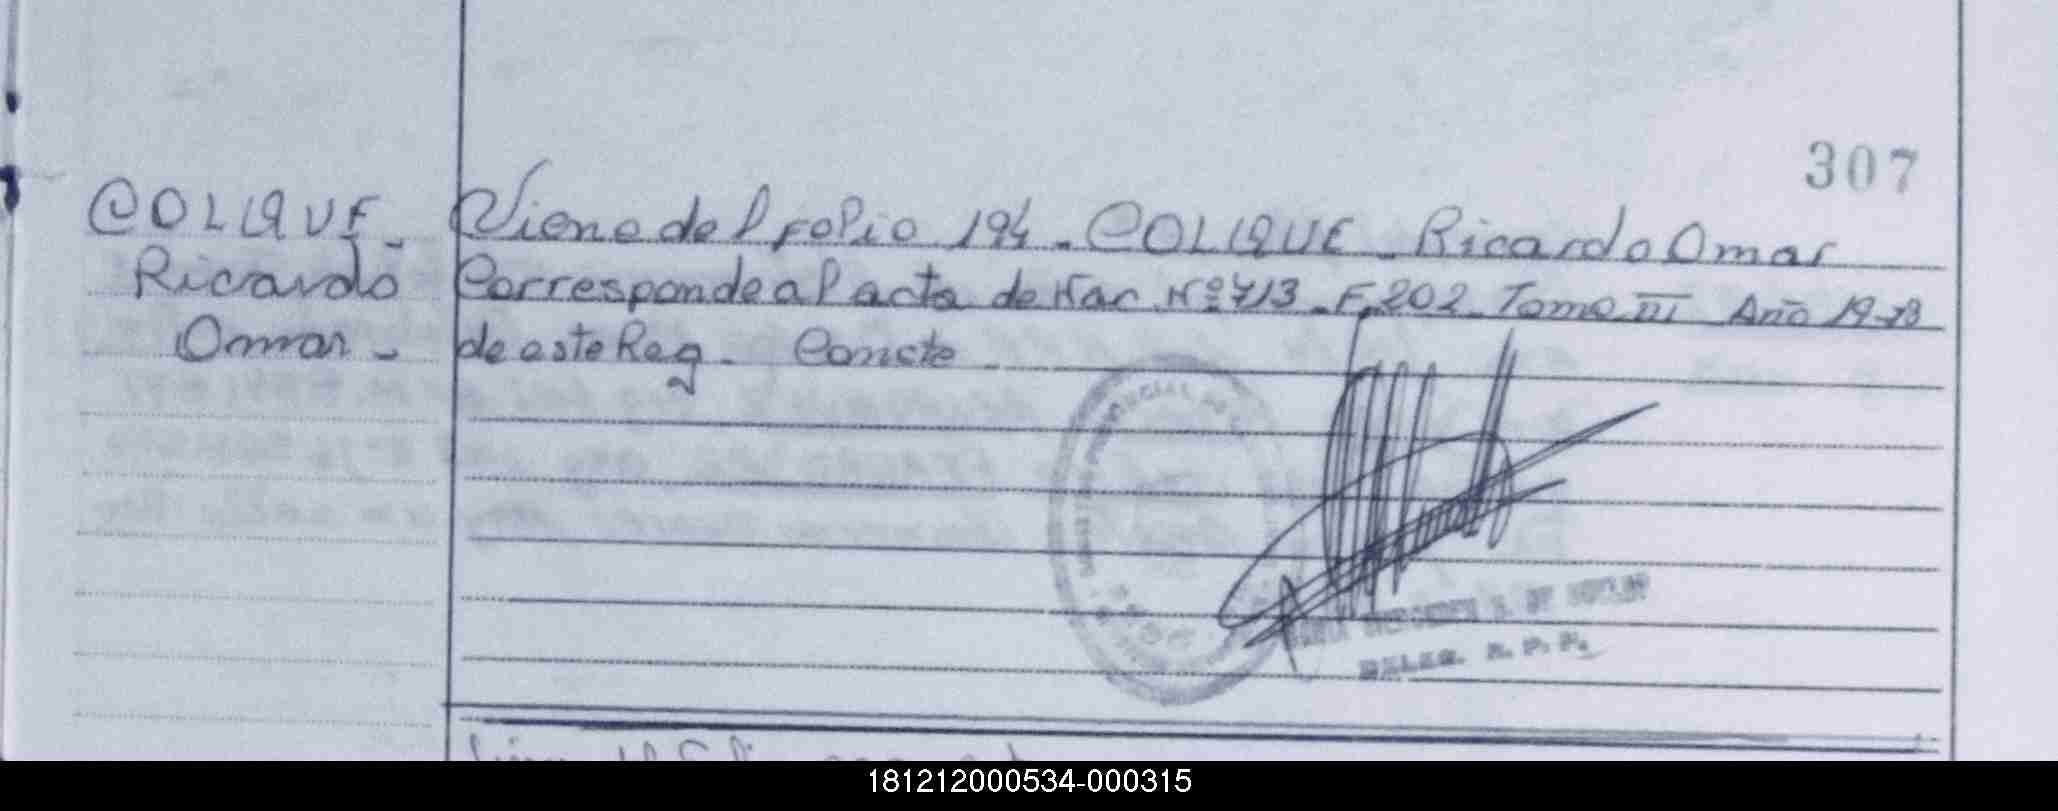 307
COLIQUE.
Ricardo
Omar.
Viene del Folio 194. COLIQUE. Ricardo Omar
Corresponde al acta de Nac. Nº 713. F. 202. Tomo III Año 19
de este Reg. Conste
DELEG. R. P. P.
181212000534-000315